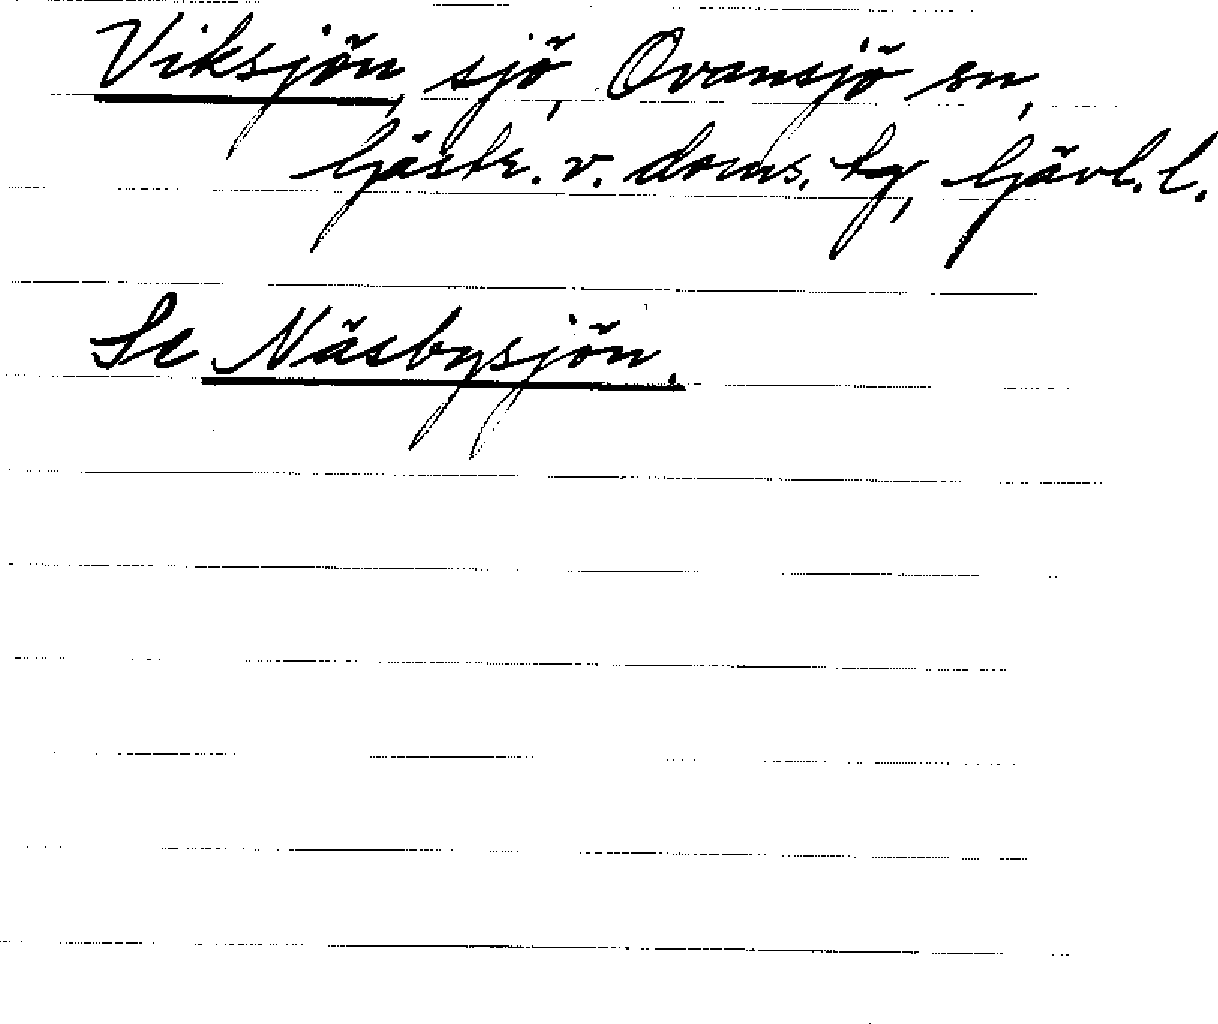 Viksjön, sjö, Ovansjö sn,
Gästr. v. doms. tg, Gävl. l.
Se Näsbysjön.